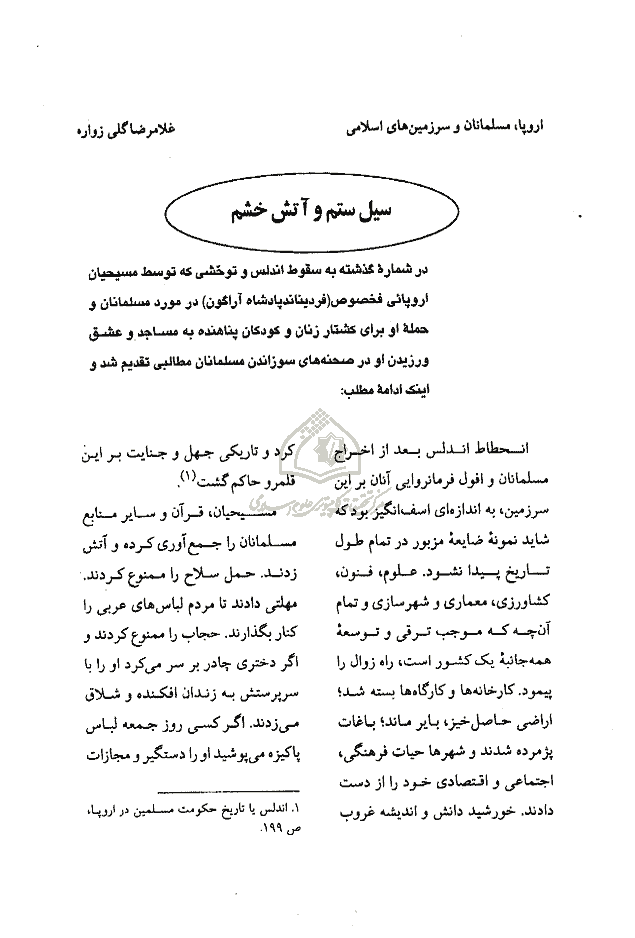 اروپا، مسلمانان و سرزمین‌های اسلامی
غلامرضا گلی زواره
سیل ستم و آتش خشم
در شمارهٔ گذشته به سقوط اندلس و توحّشی که توسط مسیحیان
اروپائی فخصوص(فردیناندپادشاه آراگون) در مورد مسلمانان و
حملهٔ او برای کشتار زنان و کودکان پناهنده به مساجد و عشق
ورزیدن او در صحنه‌های سوزاندن مسلمانان مطالبی تقدیم شد و
اینک ادامهٔ مطلب:
انحطاط اندلس بعد از اخراج
مسلمانان و افول فرمانروایی آنان بر این
سرزمین، به اندازه‌ای اسف‌انگیز بود که
شاید نمونهٔ ضایعهٔ مزبور در تمام طول
تاریخ پیدا نشود. علوم، فنون،
کشاورزی، معماری و شهرسازی و تمام
آن‌چه که موجب ترقی و توسعهٔ
همه‌جانبهٔ یک کشور است، راه زوال را
پیمود. کارخانه‌ها و کارگاه‌ها بسته شد؛
اراضی حاصل‌خیز، بایر ماند؛ باغات
پژمرده شدند و شهرها حیات فرهنگی،
اجتماعی و اقتصادی خود را از دست
دادند. خورشید دانش و اندیشه غروب
کرد و تاریکی جهل و جنایت بر این
قلمرو حاکم گشت(۱).
مسیحیان، قرآن و سایر منابع
مسلمانان را جمع‌آوری کرده و آتش
زدند. حمل سلاح را ممنوع کردند.
مهلتی دادند تا مردم لباس‌های عربی را
کنار بگذارند. حجاب را ممنوع کردند و
اگر دختری چادر بر سر می‌کرد او را با
سرپرستش به زندان افکنده و شلاق
می‌زدند. اگر کسی روز جمعه لباس
پاکیزه می‌پوشید او را دستگیر و مجازات
۱. اندلس یا تاریخ حکومت مسلمین در اروپا،
ص ۱۹۹.